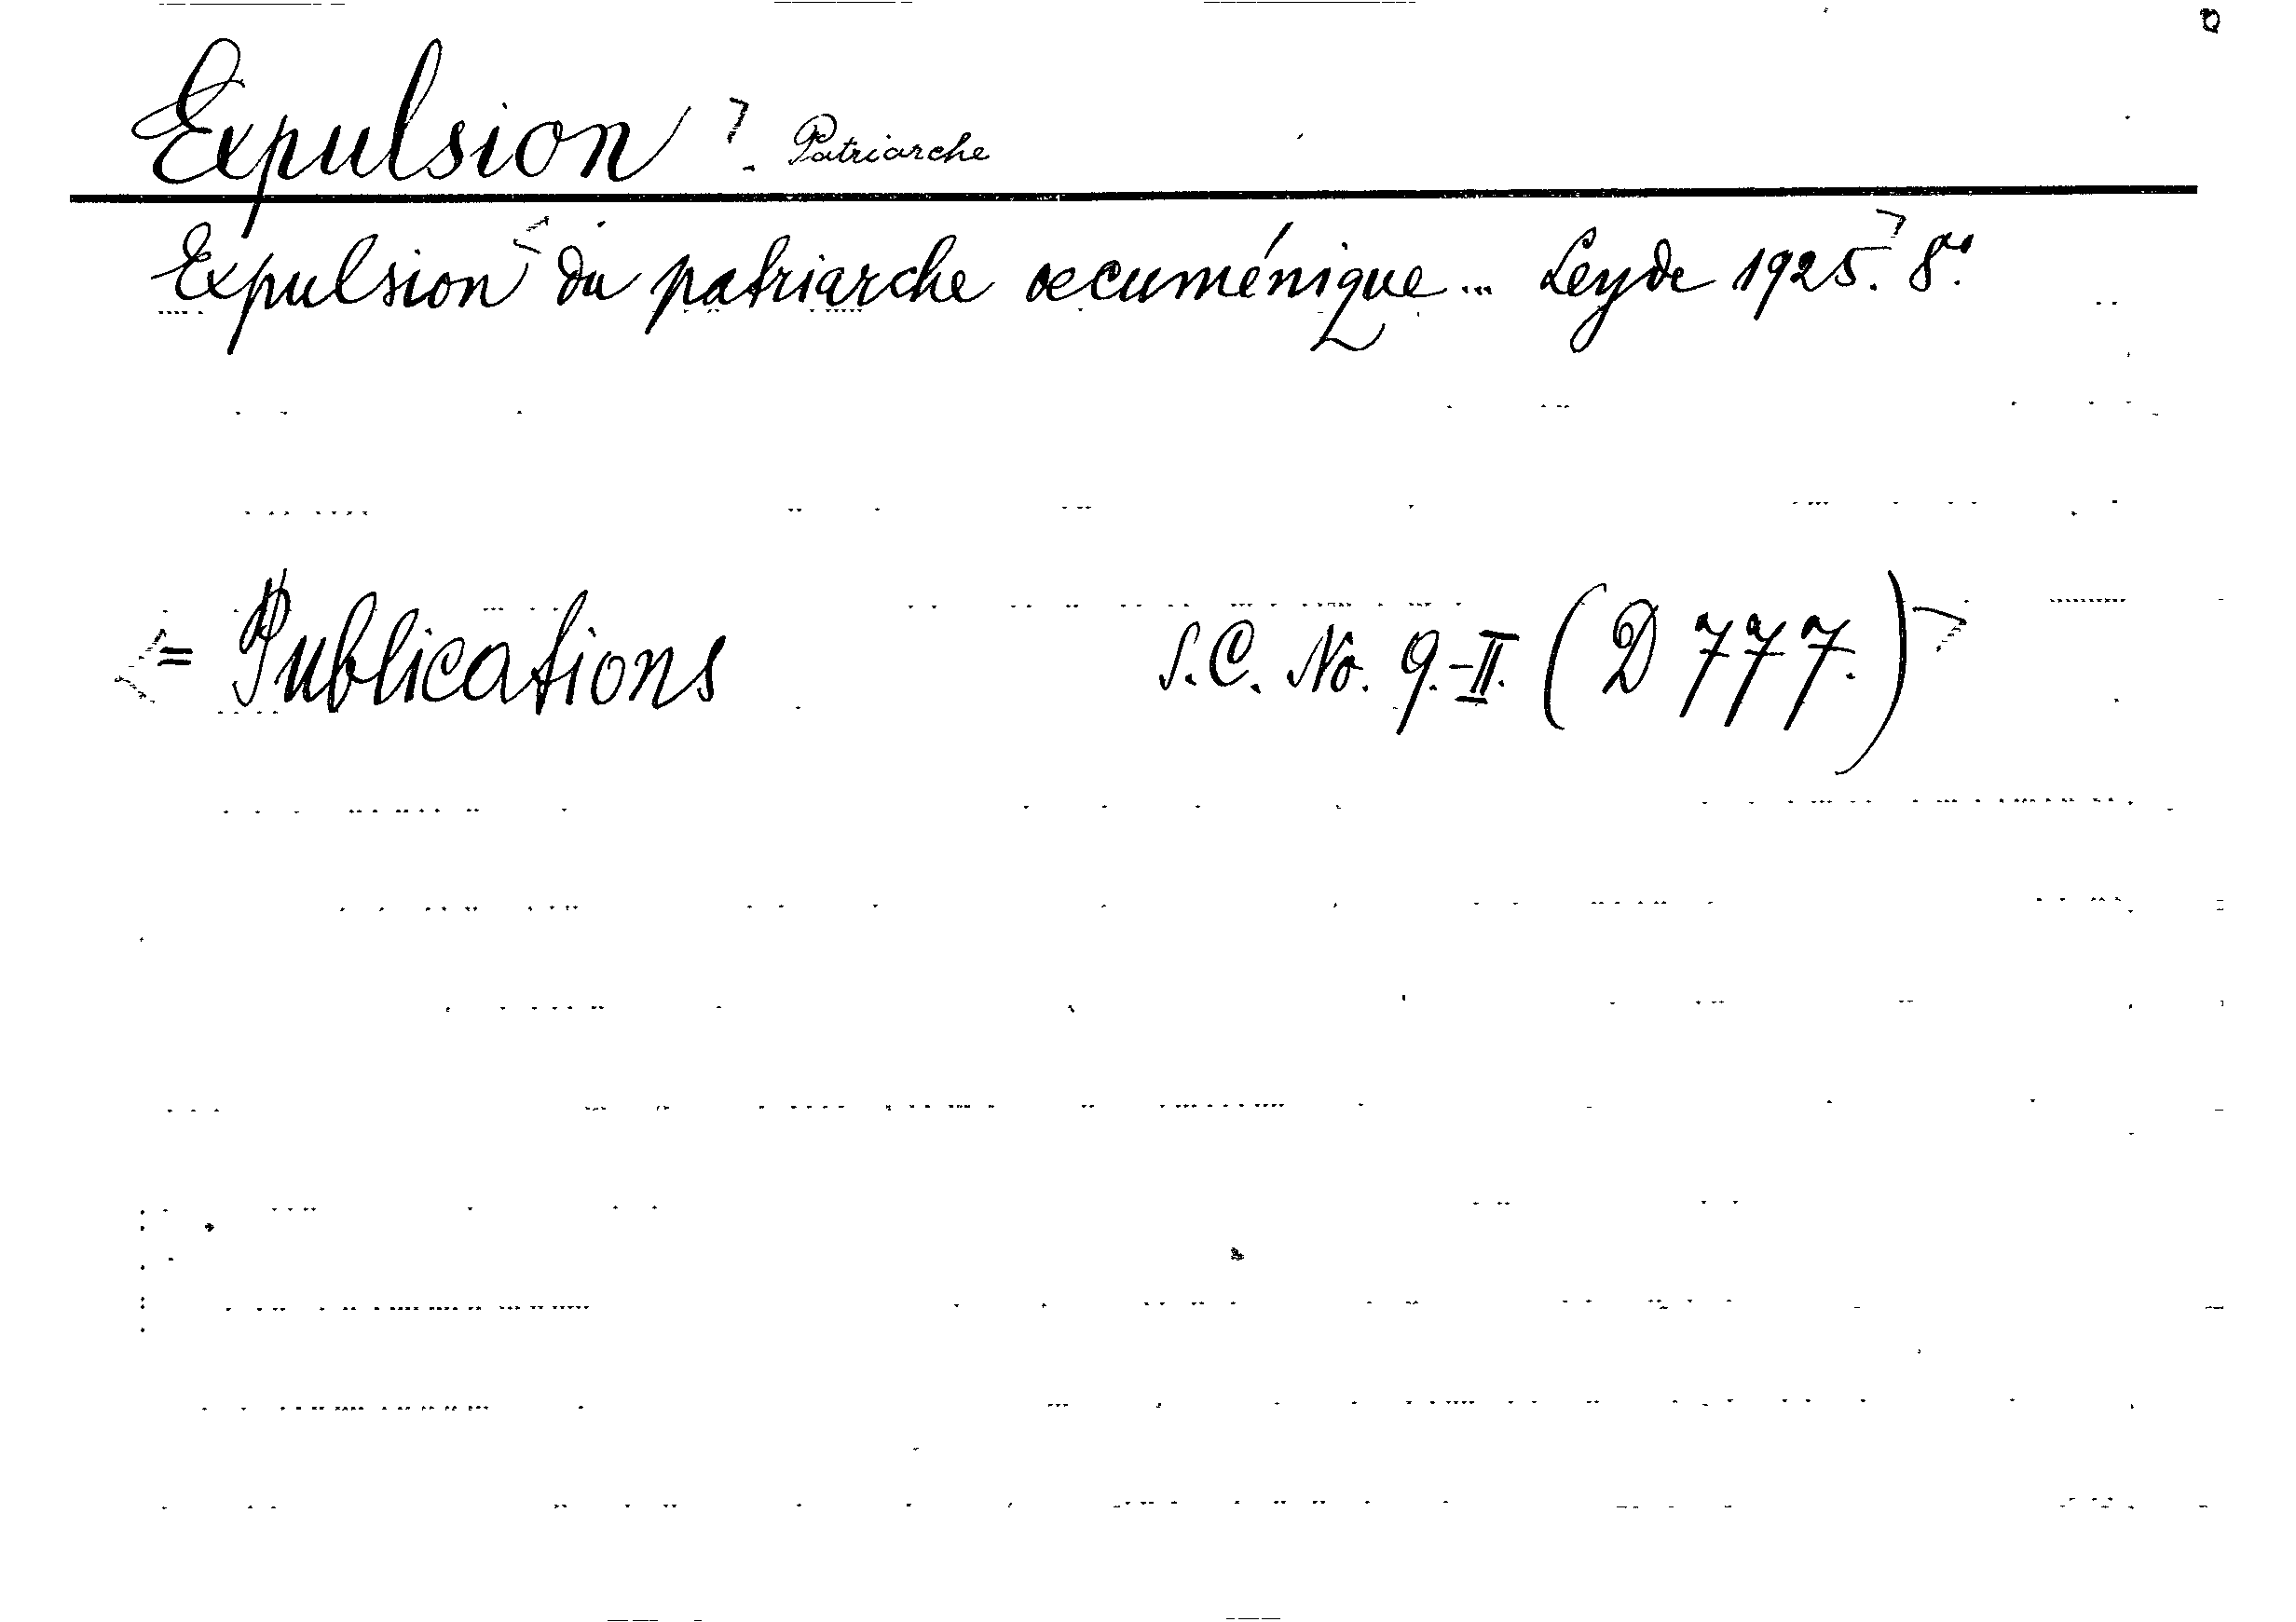 Expulsion. Patriarche
Expulsion du patriarche œcuménique... Leyde 1925. 8vo.
= Publications S.C. No. 9.-II. (D 777.)